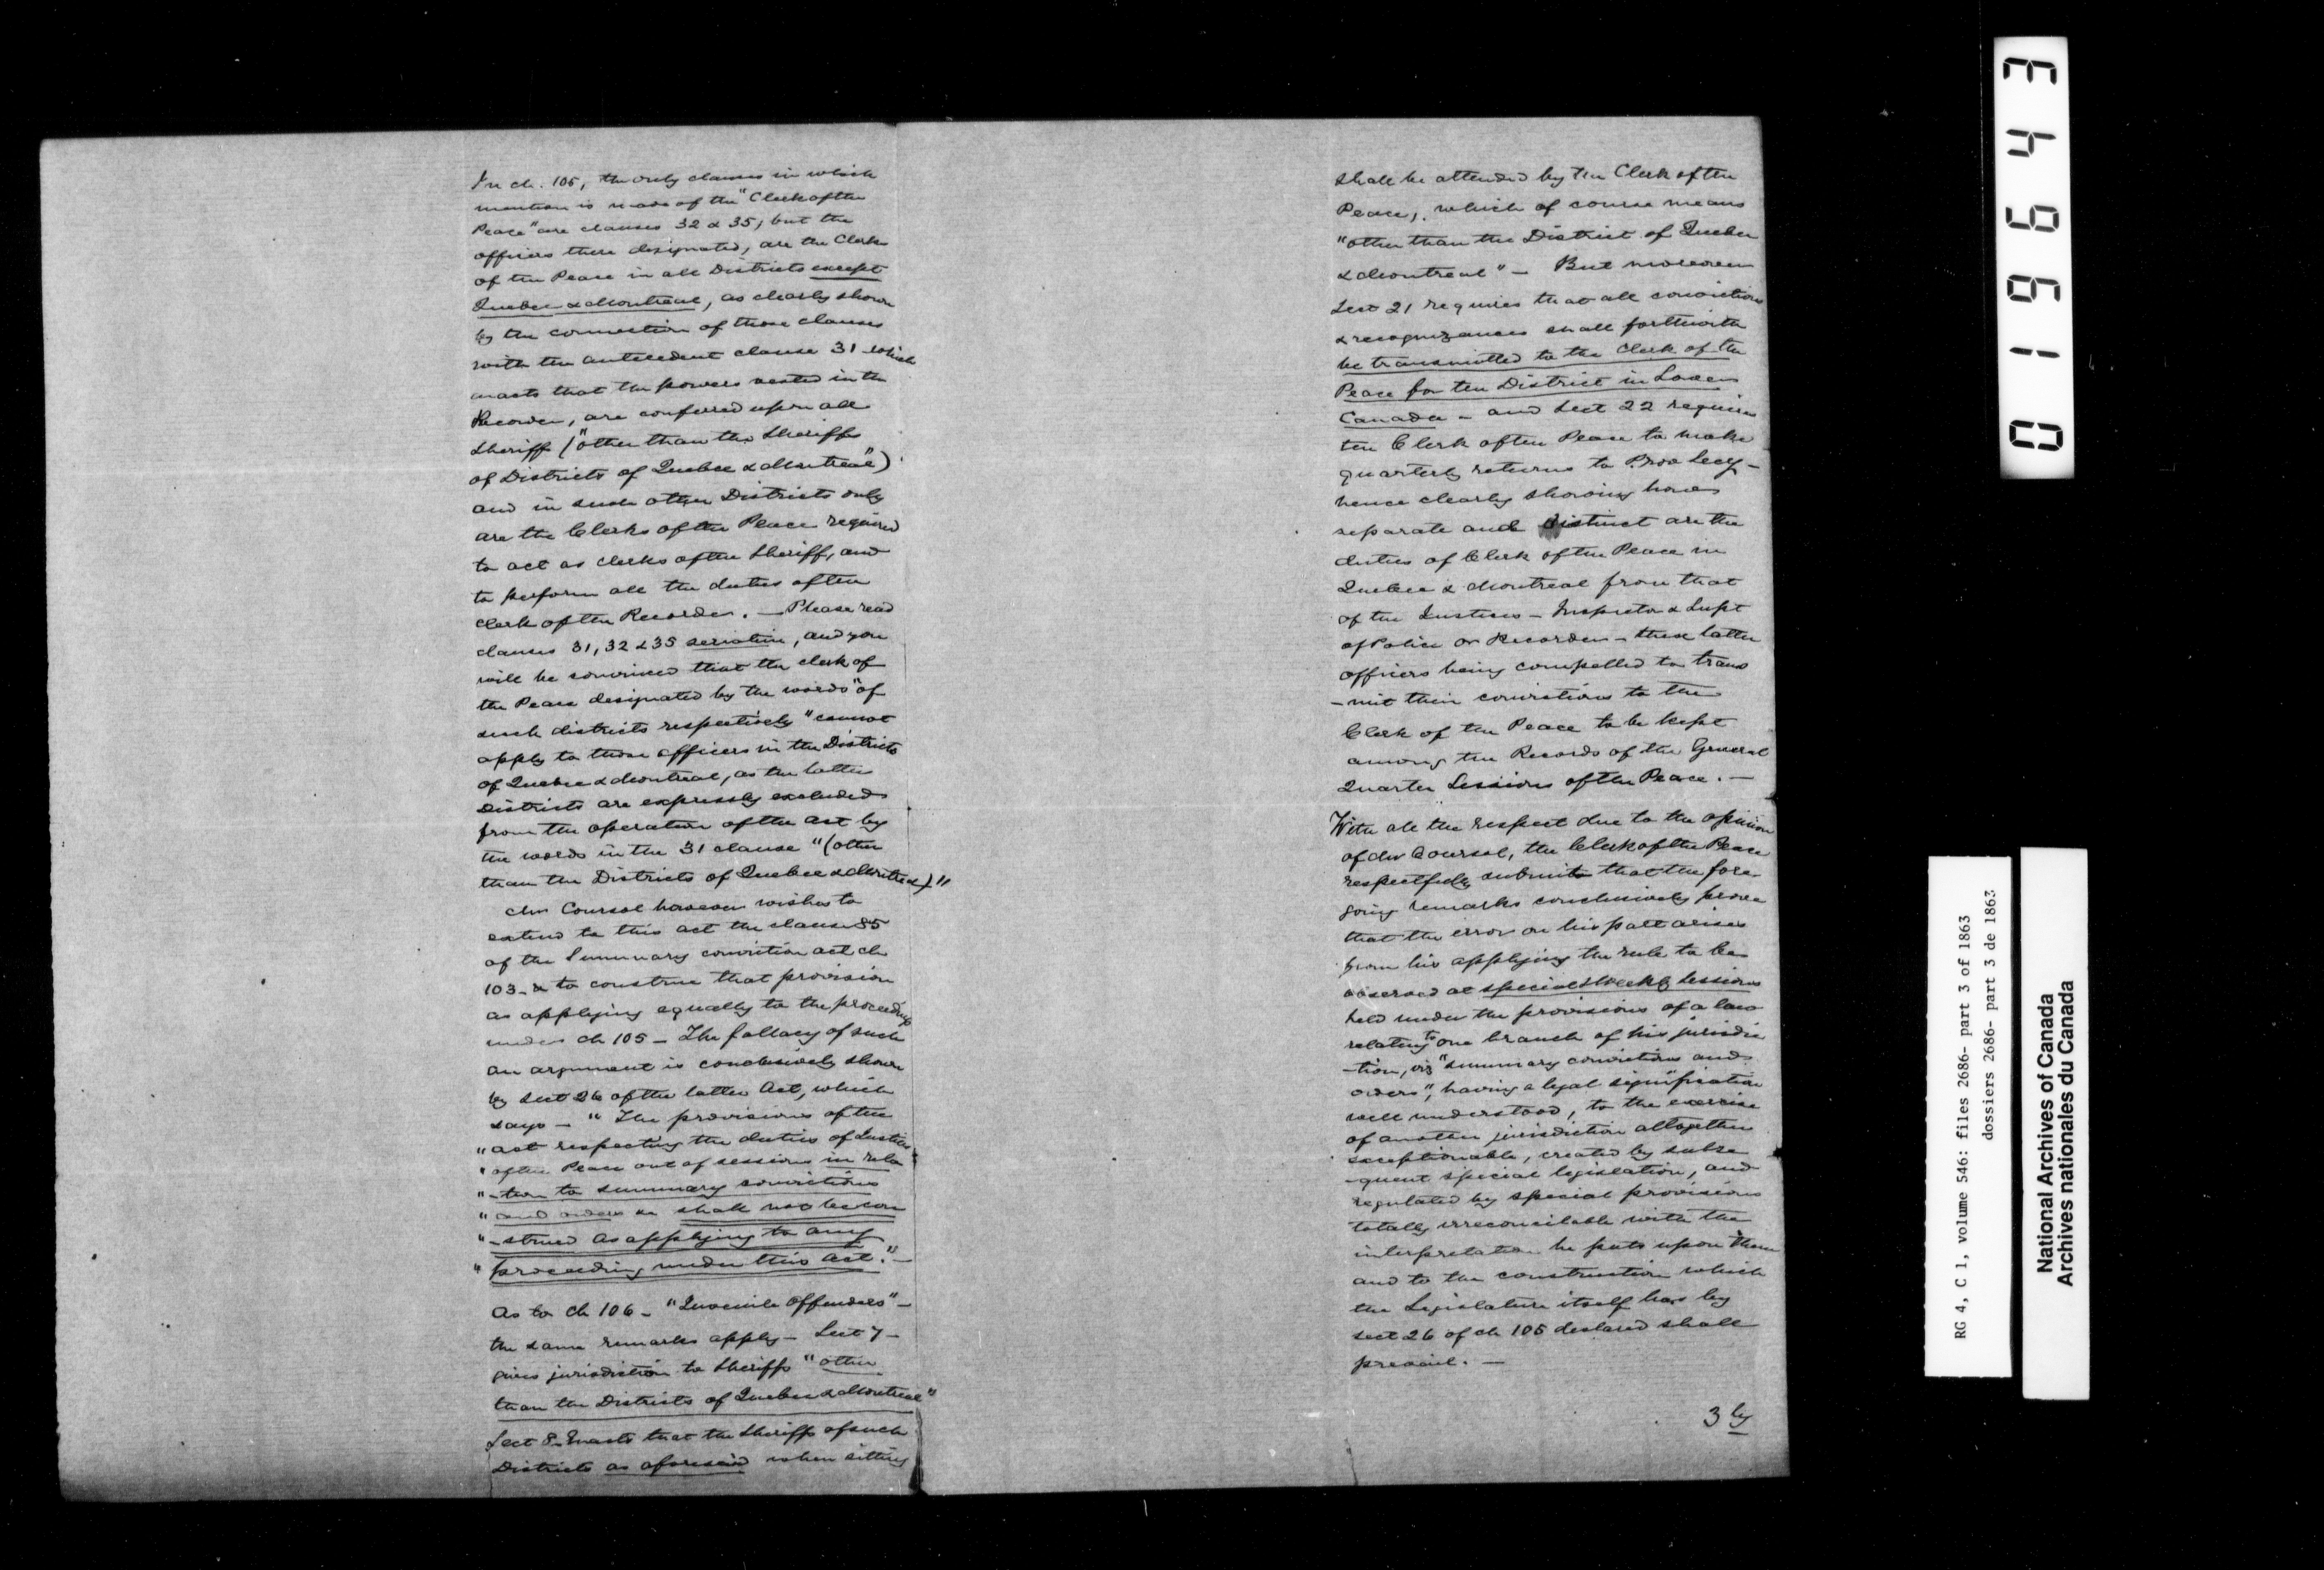 In ch. 105, the only clauses in which
mention is made of the "Clerk of the
Peace" are clauses 32 & 35, but the
officers there designated, are the Clerks
of the Peace in all Districts except
Quebec & Montreal, as clearly shown
by the connection of those clauses
with the antecedent clause 31 which
enacts that the powers vested in the
Recorder, are conferred upon all
Sheriffs ("other than the Sheriffs
of Districts of Quebec & Montreal")
and in such other Districts only
are the Clerks of the Peace required
to act as clerks of the Sheriff, and
to perform all the duties of the
Clerk of the Recorder. — Please read
clauses 31, 32 & 35 seriatim, and you
will be convinced that the clerk of
the Peace designated by the words "of
such districts respectively" cannot
apply to those officers in the Districts
of Quebec & Montreal, as the latter
Districts are expressly excluded
from the operation of the act by
the words in the 31 clause "(other
than the Districts of Quebec & Montreal)"
Mr Coursol however wishes to
extend to this act the clause 85
of the Summary conviction act ch
103 - & to construe that provision
as applying equally to the proceedings
under ch 105 — The fallacy of such
an argument is conclusively shown
by sect 26 of the latter Act, which
says — "The provisions of the
"act respecting the duties of Justices
"of the Peace out of sessions in rela
"-tion to summary convictions
"and orders &c shall not be con
"-strued as applying to any
"proceeding under this act." —
As to Ch 106 — "Juvenile Offenders" —
the same remarks apply — Sect 7 —
gives jurisdiction to Sheriffs "other
than the Districts of Quebec & Montreal"
Sect 8 Enacts that the Sheriffs of such
Districts as aforesaid when sitting
shall be attended by the Clerk of the
Peace, which of course means
"other than the District of Quebec
& Montreal" — But moreover
Sect 21 requires that all convictions
& recognizances shall forthwith
be transmitted to the Clerk of the
Peace for the District in Lower
Canada — and Sect 22 requires
the Clerk of the Peace to make
quarterly returns to Prov Secy —
hence clearly showing how
separate and distinct are the
duties of Clerk of the Peace in
Quebec & Montreal from that
of the Justices — Inspector & Supt
of Police or Recorder — these latter
officers being compelled to trans
-mit their convictions to the
Clerk of the Peace to be kept
among the Records of the General
Quarter Sessions of the Peace. —
With all the respect due to the opinion
of Mr Coursol, the Clerk of the Peace
respectfully submits that the fore
going remarks conclusively prove
that the error on his part arises
from his applying the rule to be
observed at special & weekly sessions
held under the provisions of a law
relating to one branch of his jurisdic
-tion, viz "summary convictions and
orders", having a legal signification
well understood, to the exercise
of another jurisdiction altogether
exceptionable, created by subse
-quent special legislation, and
regulated by special provisions
totally irreconcilable with the
interpretation he puts upon them
and to the construction which
the Legislature itself has by
sect 26 of ch 105 declared shall
prevail. —
3ly
019643
RG 4, C 1, volume 546: files 2686- part 3 of 1863
dossiers 2686- part 3 de 1863
National Archives of Canada
Archives nationales du Canada